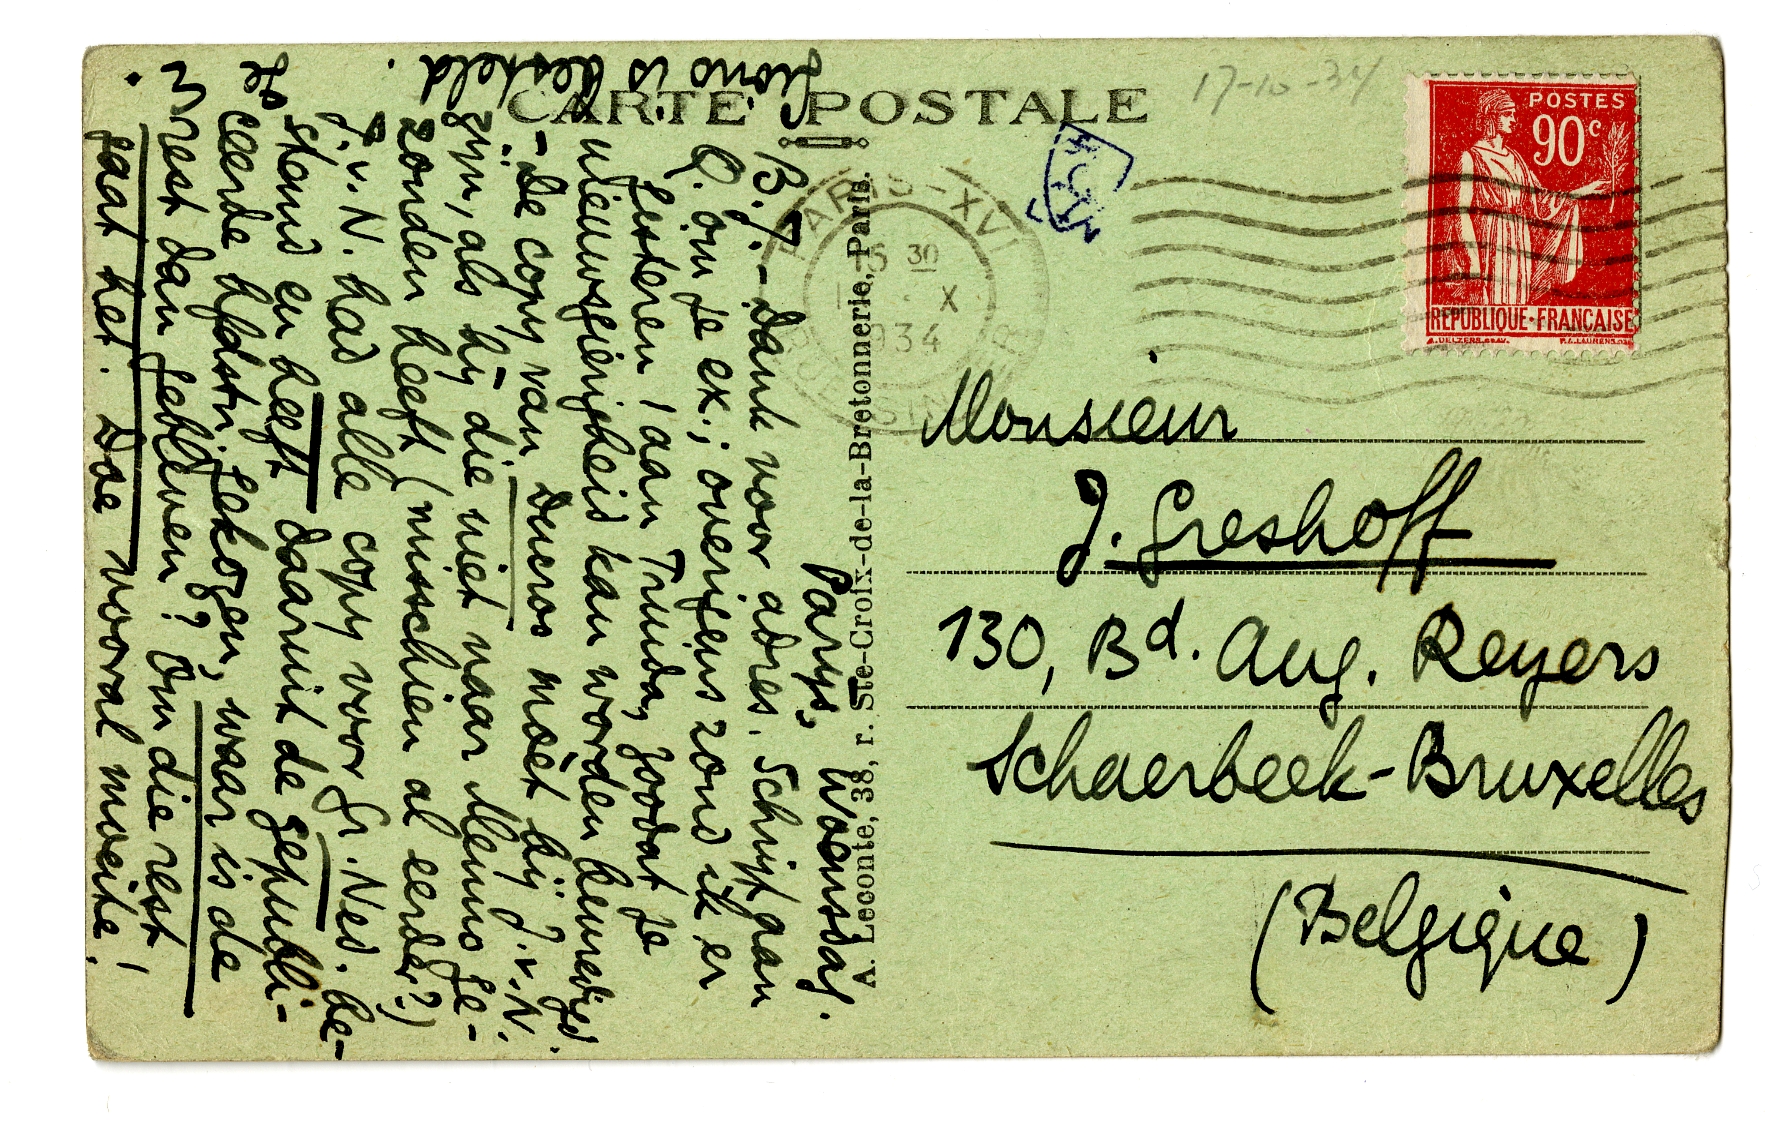 CARTE POSTALE
17-10-34
POSTES
90c
REPUBLIQUE·FRANCAISE
PARIS-XVI
15 30
X
1934
A. Leconte, 38, r. Ste-Croix-de-la-Bretonnerie, Paris.
Monsieur
J. Greshoff
130, Bd. Aug. Reyers
Schaerbeek-Bruxelles
(Belgique)
Parijs, Woensdag.
B.J. - Dank voor adres. Schrijf aan
Q. om je ex.; overigens zond ik er
gisteren 1 aan Truida, zoodat je
nieuwsgierigheid kan worden bevredigd.
- De copy van Ducros moèt bij J.v.N.
zijn, als hij die niet naar Menno ge-
zonden heeft (misschien al eerder?)
J.v.N. had alle copy voor Gr. Ned. be-
stemd en heeft daaruit de gepubli-
ceerde hfdstn. gekozen, waar is de
rest dan gebleven? Om die rest
gaat het. Doe vooral moeite!
is besteld.